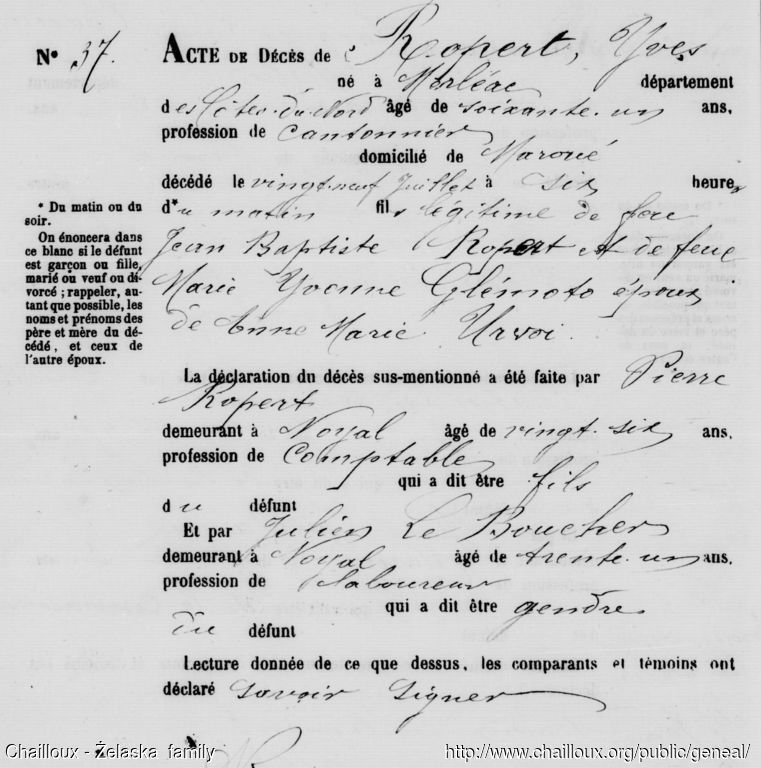 N° 37. ACTE DE DÉCÈS de Ropert, Yves
né à Merléac département
des Côtes-du-Nord âgé de soixante-un ans,
profession de cantonnier
domicilié de Maroué
décédé le vingt-neuf Juillet à six heures
d*u matin fils légitime de feu
Jean Baptiste Ropert et de feue
Marie Yvonne Glémoto époux
de Anne Marie Urvoi.
* Du matin ou du
soir.
On énoncera dans
ce blanc si le défunt
est garçon ou fille,
marié ou veuf ou di-
vorcé ; rappeler, au-
tant que possible, les
noms et prénoms des
père et mère du dé-
cédé, et ceux de
l'autre époux.
La déclaration du décès sus-mentionné a été faite par Pierre
Ropert
demeurant à Noyal âgé de vingt-six ans,
profession de Comptable
qui a dit être fils
du défunt
Et par Julien Le Boucher
demeurant à Noyal âgé de trente-un ans.
profession de laboureur
qui a dit être gendre
du défunt
Lecture donnée de ce que dessus, les comparants et témoins ont
déclaré savoir signer
Chailloux - Żelaska family http://www.chailloux.org/public/geneal/